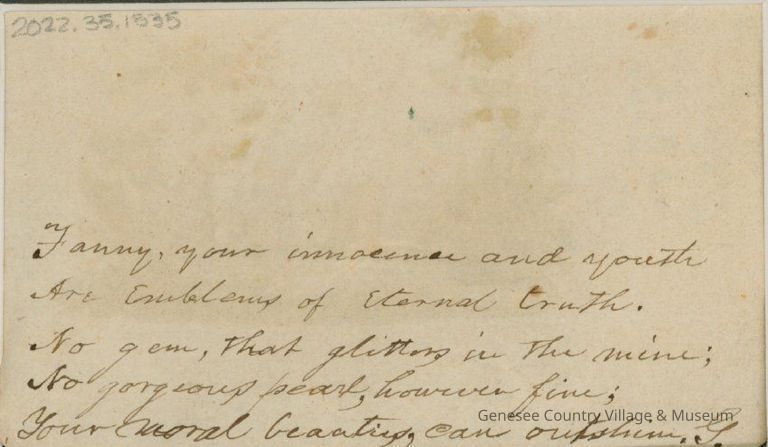 2022.35.1335
Fanny, your innocence and youth
Are Emblems of Eternal truth.
No gem, that glitters in the mine;
No gorgeous pearl, however fine;
Your moral beauties, can outshine.
Genesee Country Village & Museum